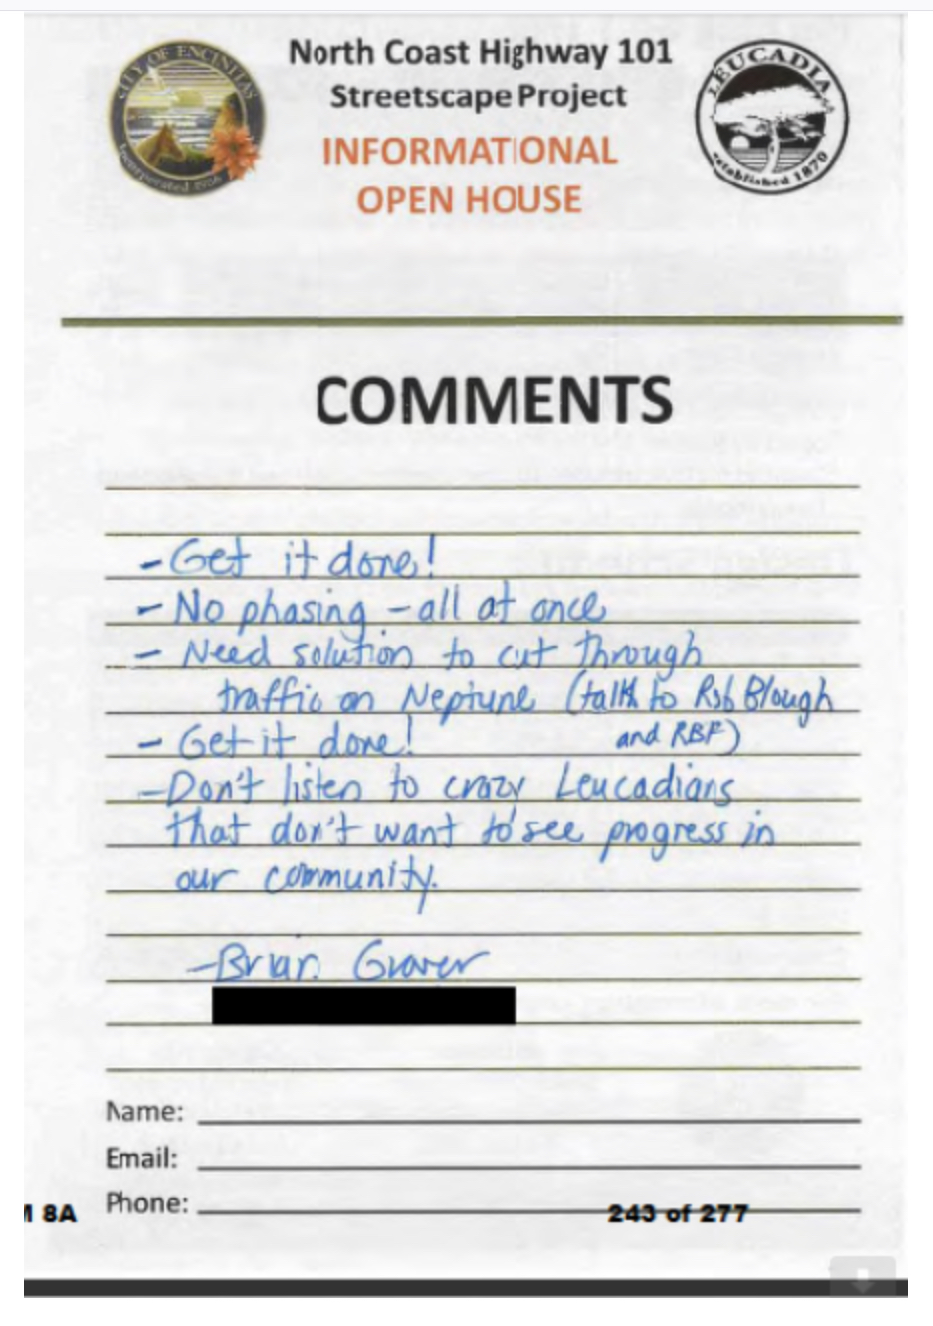 CITY OF ENCINITAS
Incorporated 1986
North Coast Highway 101
Streetscape Project
INFORMATIONAL
OPEN HOUSE
LEUCADIA
established 1870
COMMENTS
- Get it done!
- No phasing - all at once
- Need solution to cut through
traffic on Neptune (talk to Rob Blough
and RBF)
- Get it done!
- Don't listen to crazy Leucadians
that don't want to see progress in
our community.
- Brian Grover
Name:
Email:
Phone:
8A
243 of 277